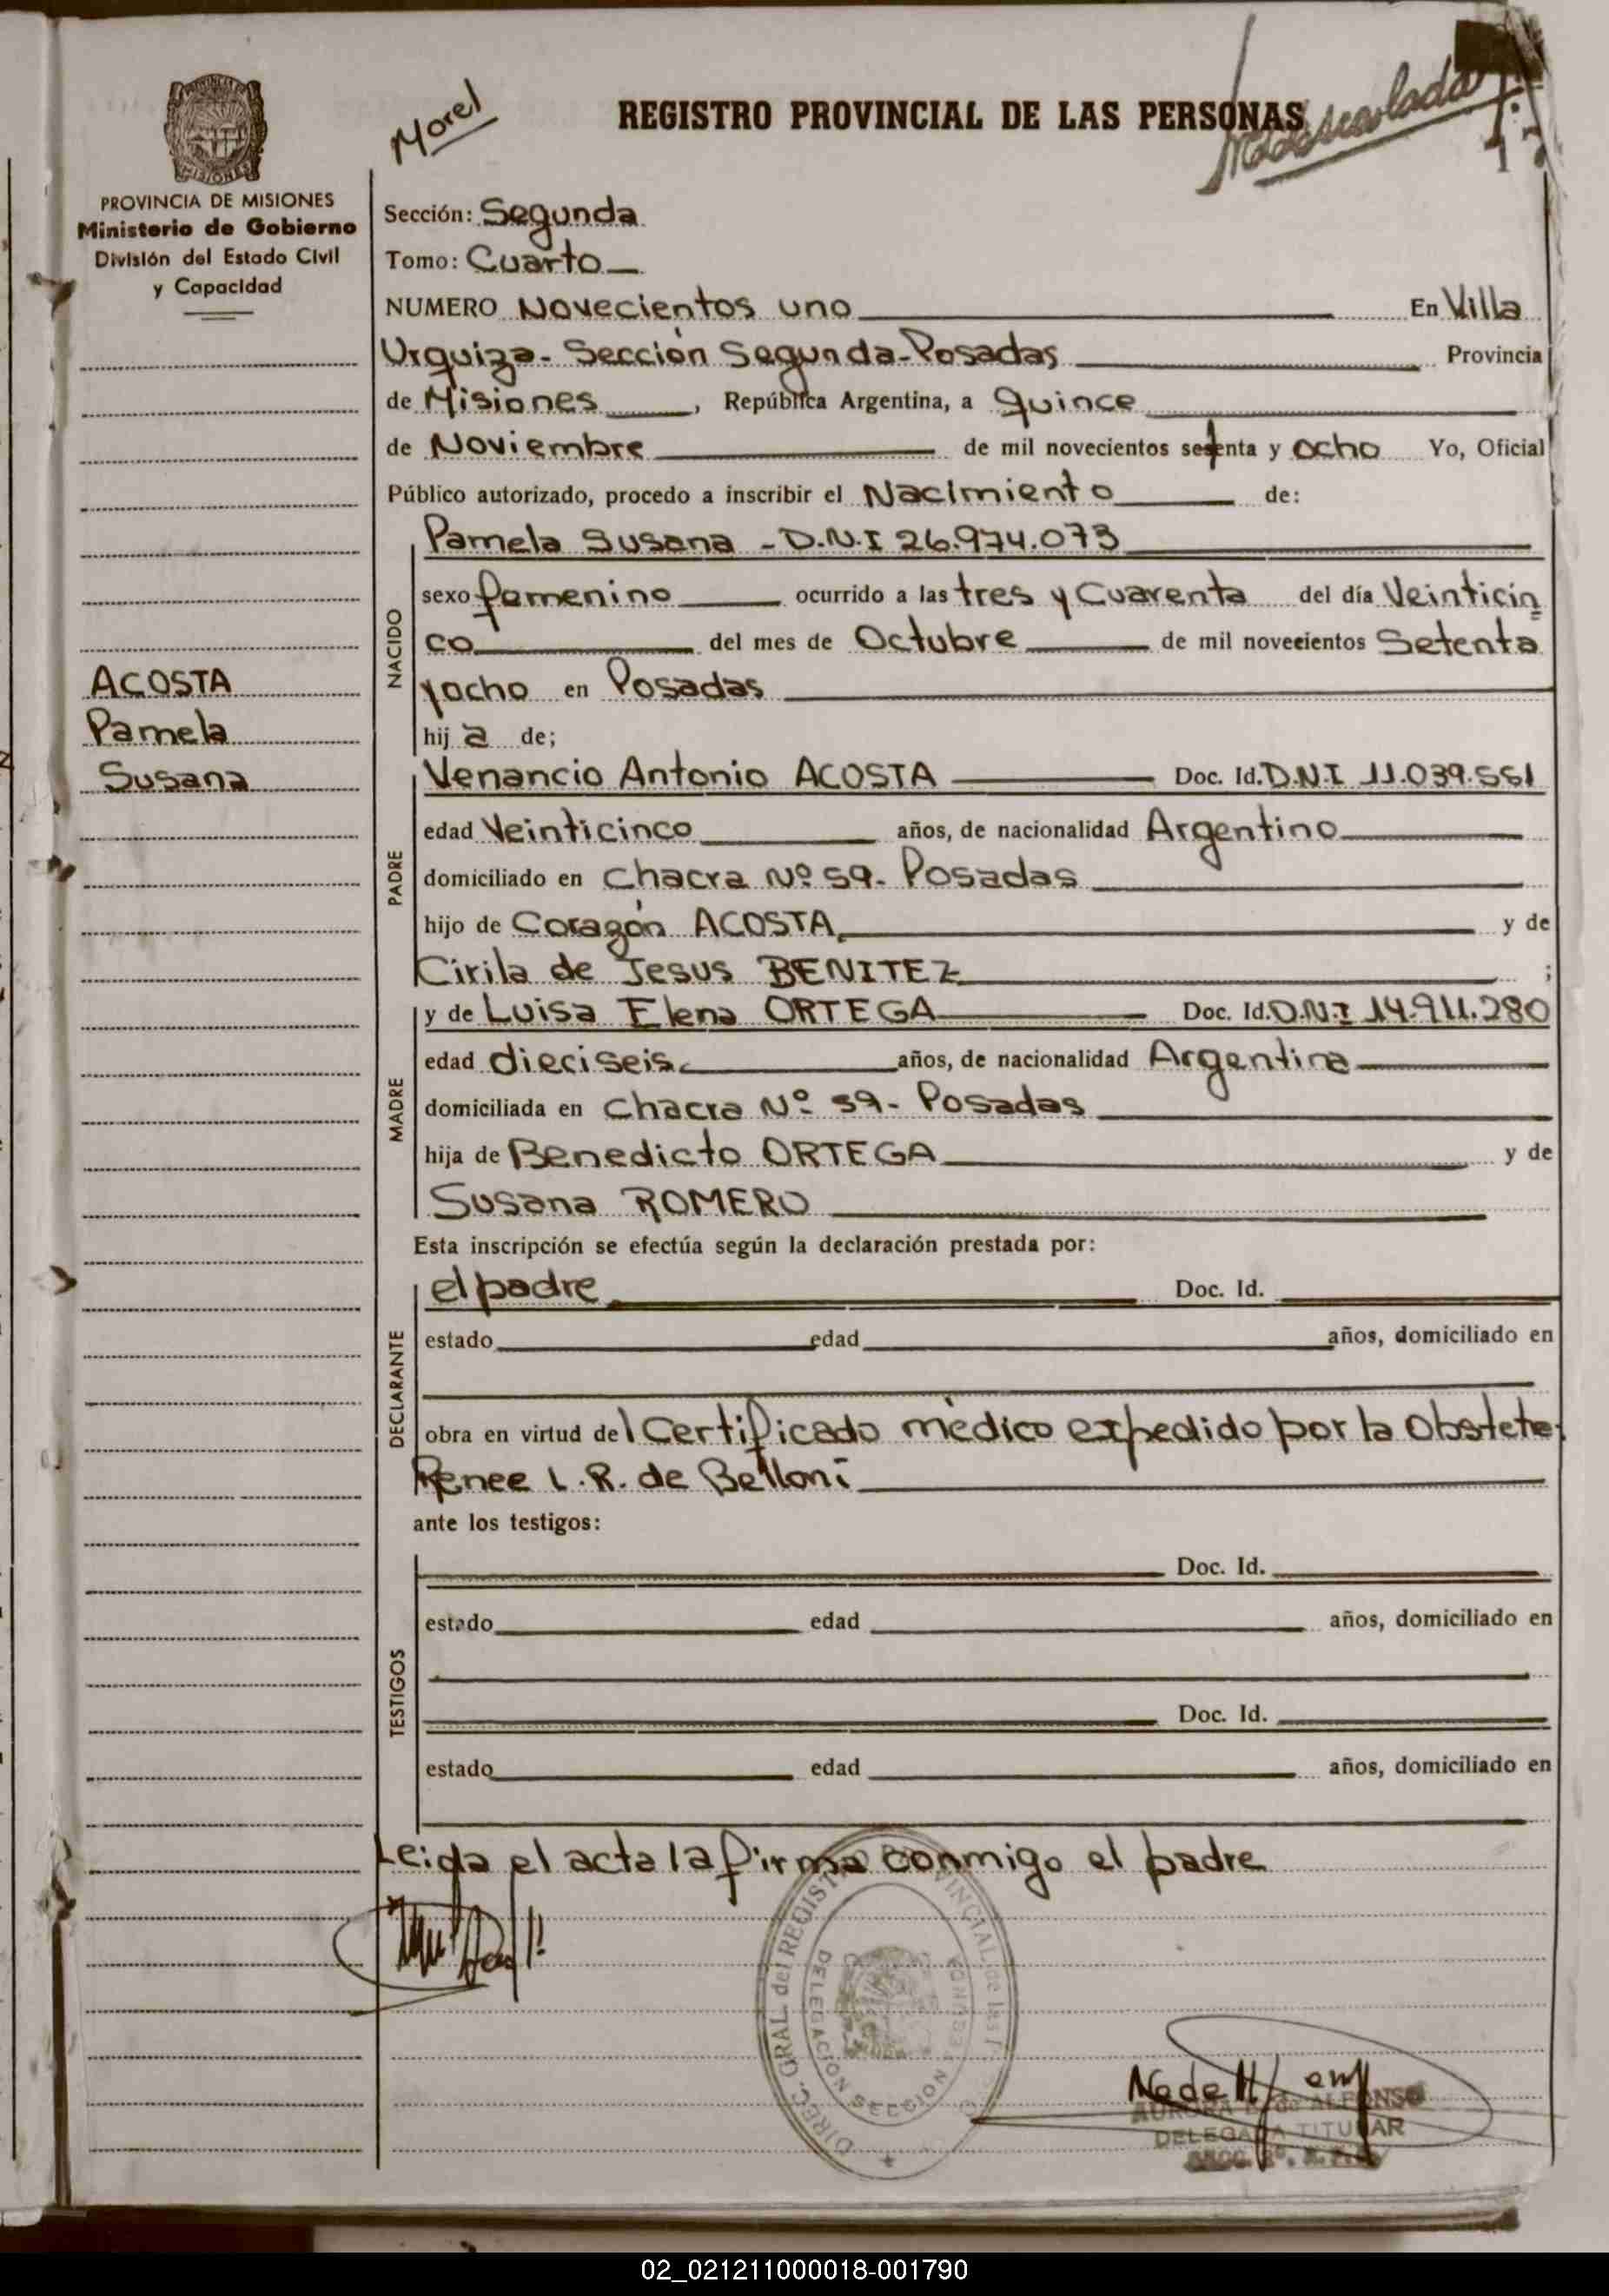 Morel
REGISTRO PROVINCIAL DE LAS PERSONAS
PROVINCIA DE MISIONES
Ministerio de Gobierno
División del Estado Civil
y Capacidad
Sección: Segunda
Tomo: Cuarto
NUMERO Novecientos uno En Villa
Urquiza - Sección Segunda - Posadas Provincia
de Misiones, República Argentina, a Quince
de Noviembre de mil novecientos setenta y ocho Yo, Oficial
Público autorizado, procedo a inscribir el Nacimiento de:
Pamela Susana - D.N.I 26.974.073
NACIDO
sexo femenino ocurrido a las tres y Cuarenta del día Veinticin
co del mes de Octubre de mil novecientos Setenta
yocho en Posadas
hij a de;
ACOSTA
Pamela
Susana
PADRE
Venancio Antonio ACOSTA Doc. Id. D.N.I 11.039.551
edad Veinticinco años, de nacionalidad Argentino
domiciliado en Chacra Nº 59 - Posadas
hijo de Corazón ACOSTA y de
Cirila de Jesus BENITEZ ;
MADRE
y de Luisa Elena ORTEGA Doc. Id. D.N.I 14.911.280
edad dieciseis años, de nacionalidad Argentina
domiciliada en Chacra Nº 59 - Posadas
hija de Benedicto ORTEGA y de
Susana ROMERO
Esta inscripción se efectúa según la declaración prestada por:
DECLARANTE
el padre Doc. Id.
estado edad años, domiciliado en
obra en virtud del Certificado médico expedido por la
Renee L. R. de Belloni
ante los testigos:
TESTIGOS
Doc. Id.
estado edad años, domiciliado en
Doc. Id.
estado edad años, domiciliado en
Leida el acta la firma conmigo el padre
DIREC. GRAL. del REGISTRO PROVINCIAL de las
DELEGACION SECCION
AURORA de ALFONSO
DELEGADA TITULAR
02_021211000018-001790